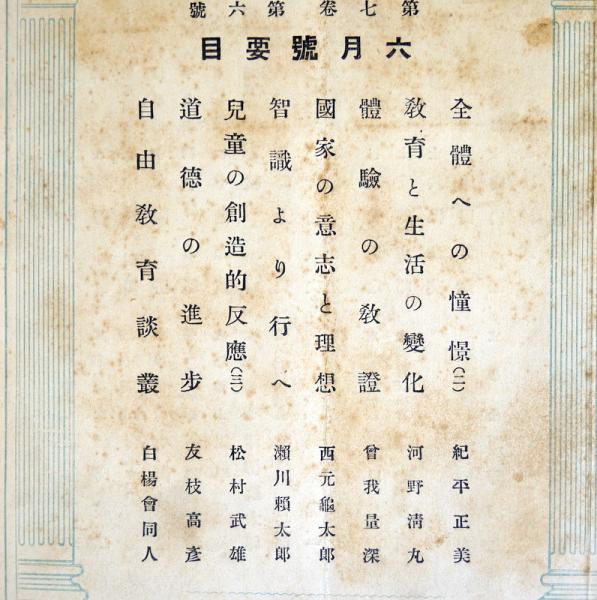 第七卷 第六號
六月號要目
全體への憧憬(二) 紀平正美
教育と生活の變化 河野淸丸
體驗の教證 曾我量深
國家の意志と理想 西元龜太郎
智識より行へ 瀨川賴太郎
兒童の創造的反應(三) 松村武雄
道德の進步 友枝高彥
自由教育談叢 白楊會同人